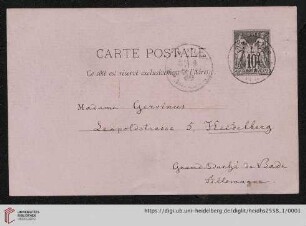 CARTE POSTALE
Ce côté est réservé exclusivement à l'adresse
10
Madame Gervinus
Leopoldstrasse 5 Heidelberg
Grand Duché de Bade
Allemagne
UNIVERSITÄTS-
BIBLIOTHEK
HEIDELBERG
https://digi.ub.uni-heidelberg.de/diglit/heidhs2558_1/0001